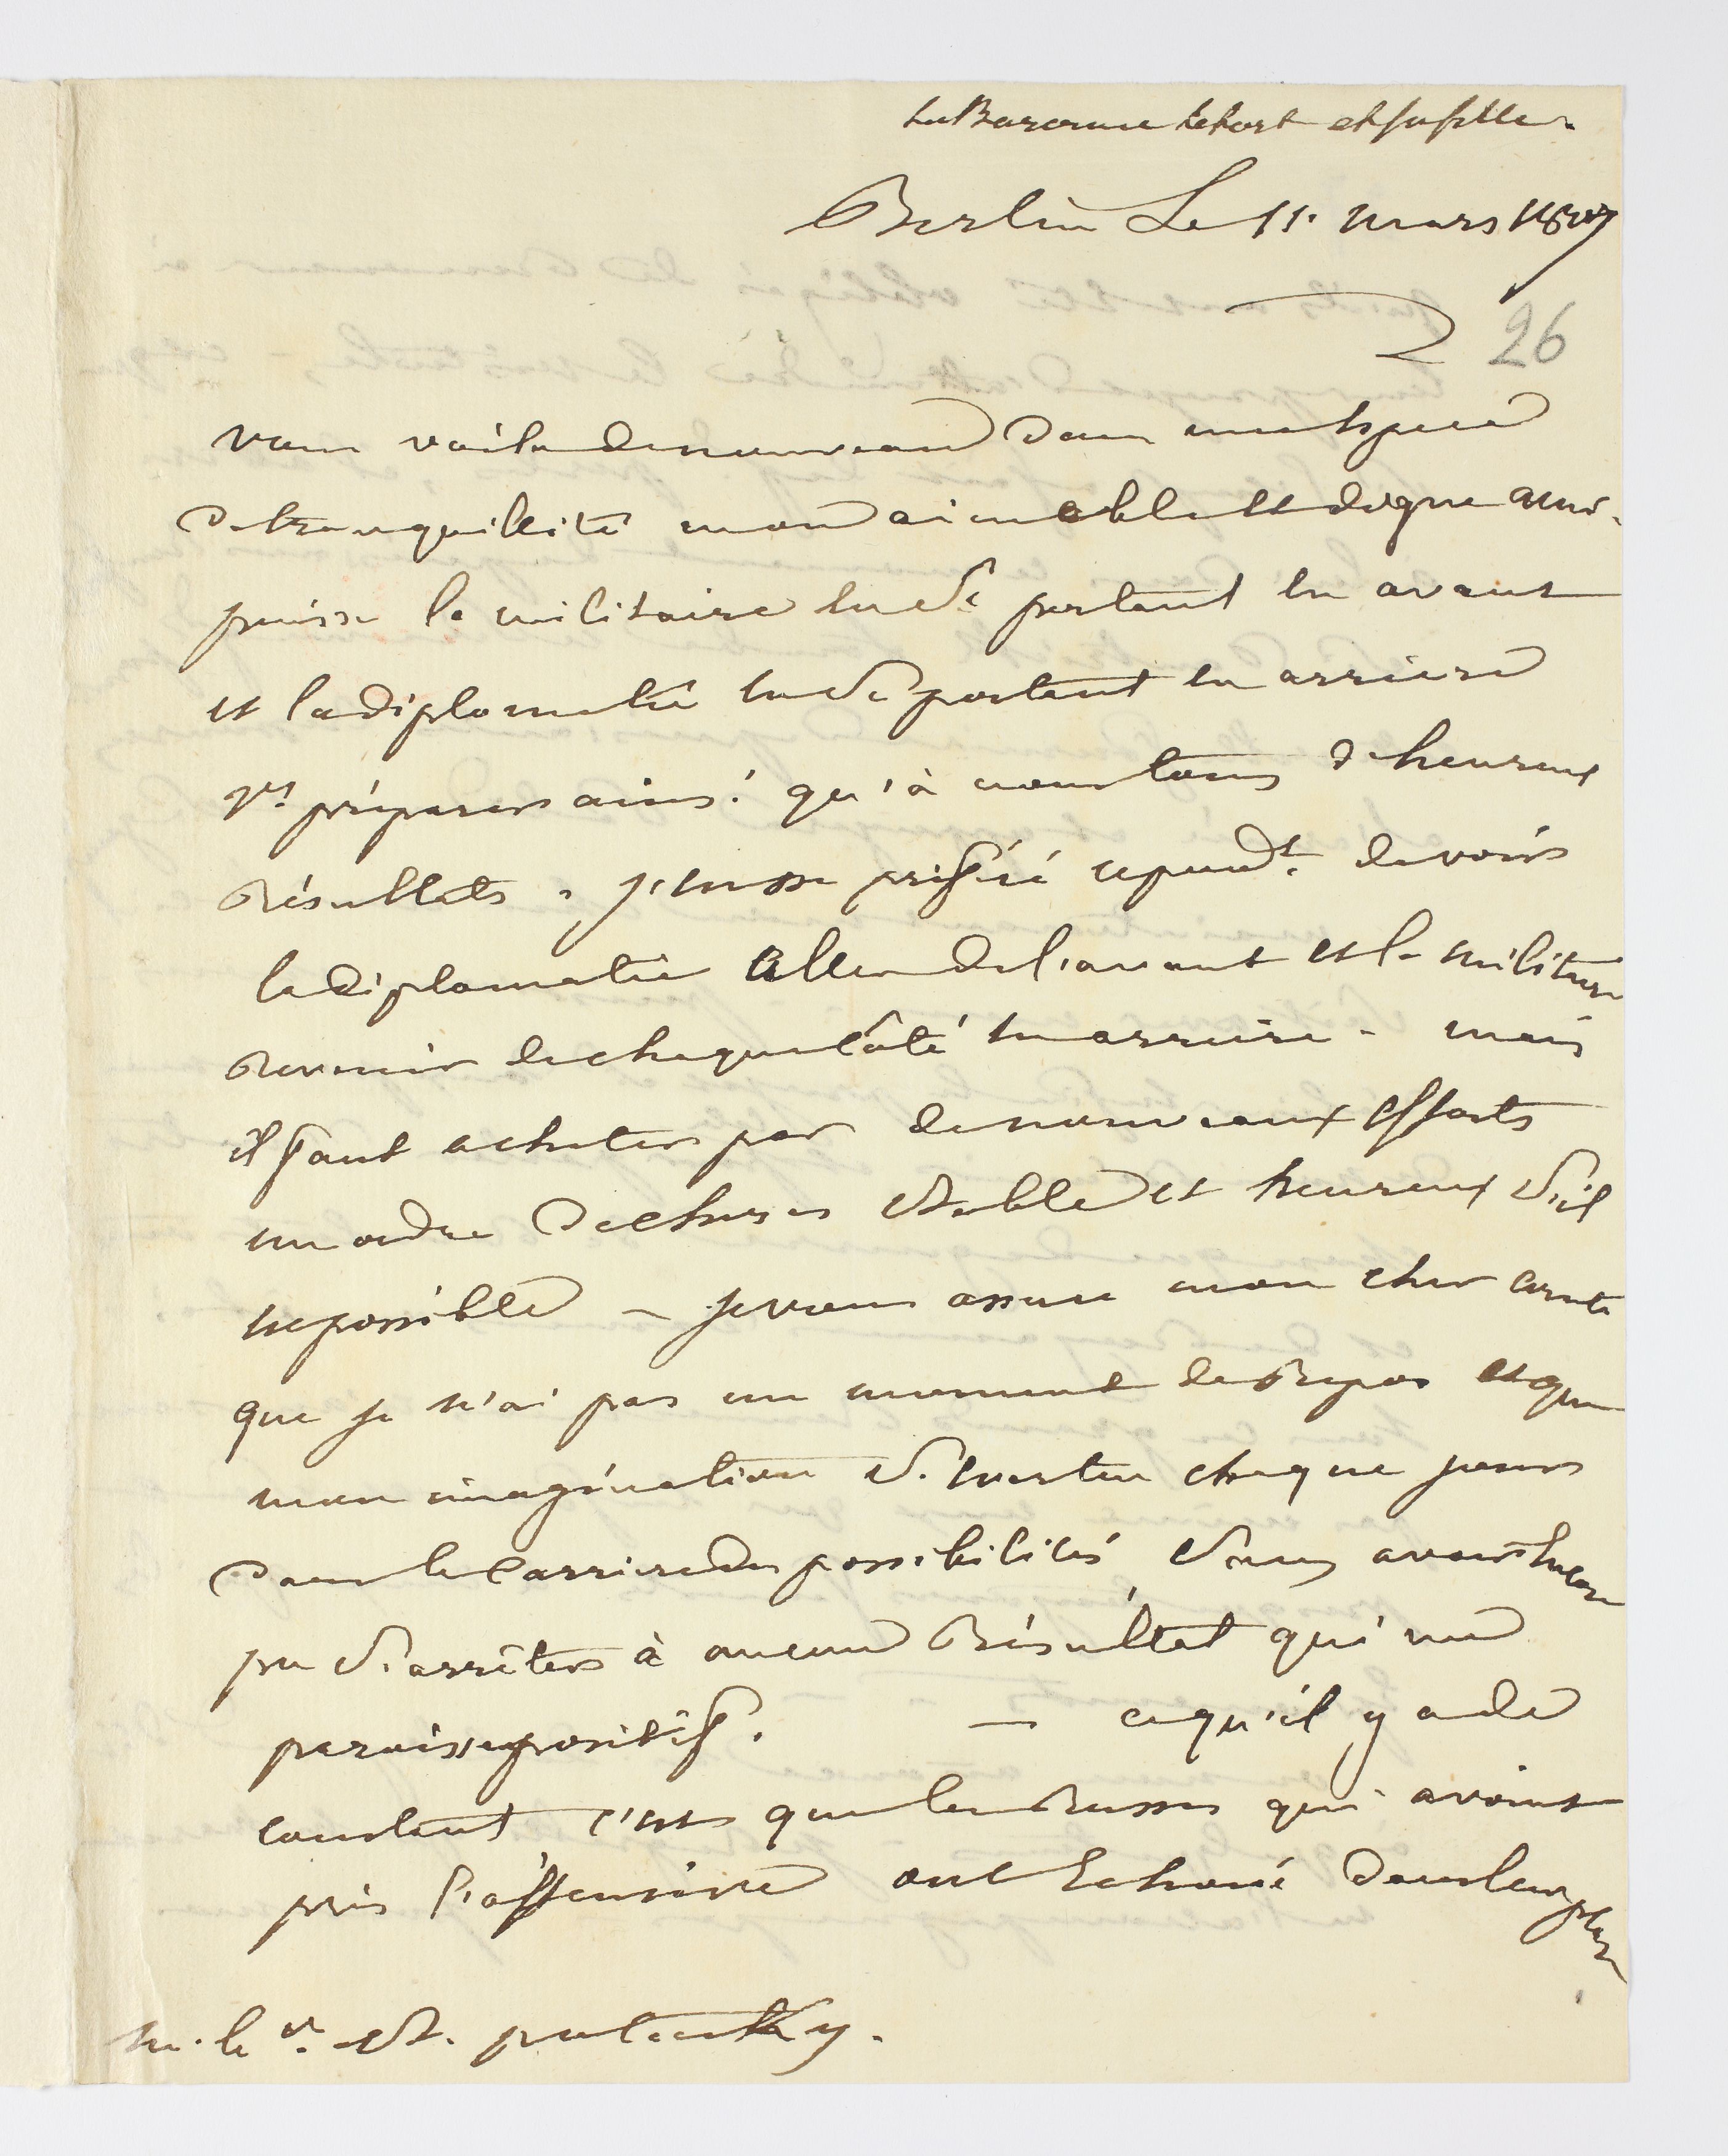 La Baronne Lefort et sa fille.
Berlin Le 11. mars 1807
2 26
vous voila de nouveau dans une espece
de tranquillité mon aimable et digne ami.
puisse le militaire en se portant en avant
et la diplomatie en se portant en arriere
vs préparer ainsi qu'à nous tous d'heureux
résultats. j'eusse préféré cepend.t de voir
la diplomatie aller de l'avant et le militaire
revenir de chaque côté en arriere - mais
il faut acheter par de nouveaux efforts
un ordre de choses stable et heureux s'il
est possible - je vous assure mon cher comte
que je n'ai pas un moment de repos et que
mon imagination s'exerce chaque jour
dans la carriere des possibilités sans avoir encore
pu s'arrêter à aucun résultat qui me
paroisse positif. - ce qu'il y a de
constant c'est que les Russes qui avoient
pris l'offensive ont Echoué dans leur plan
m. le c. St. potocky.